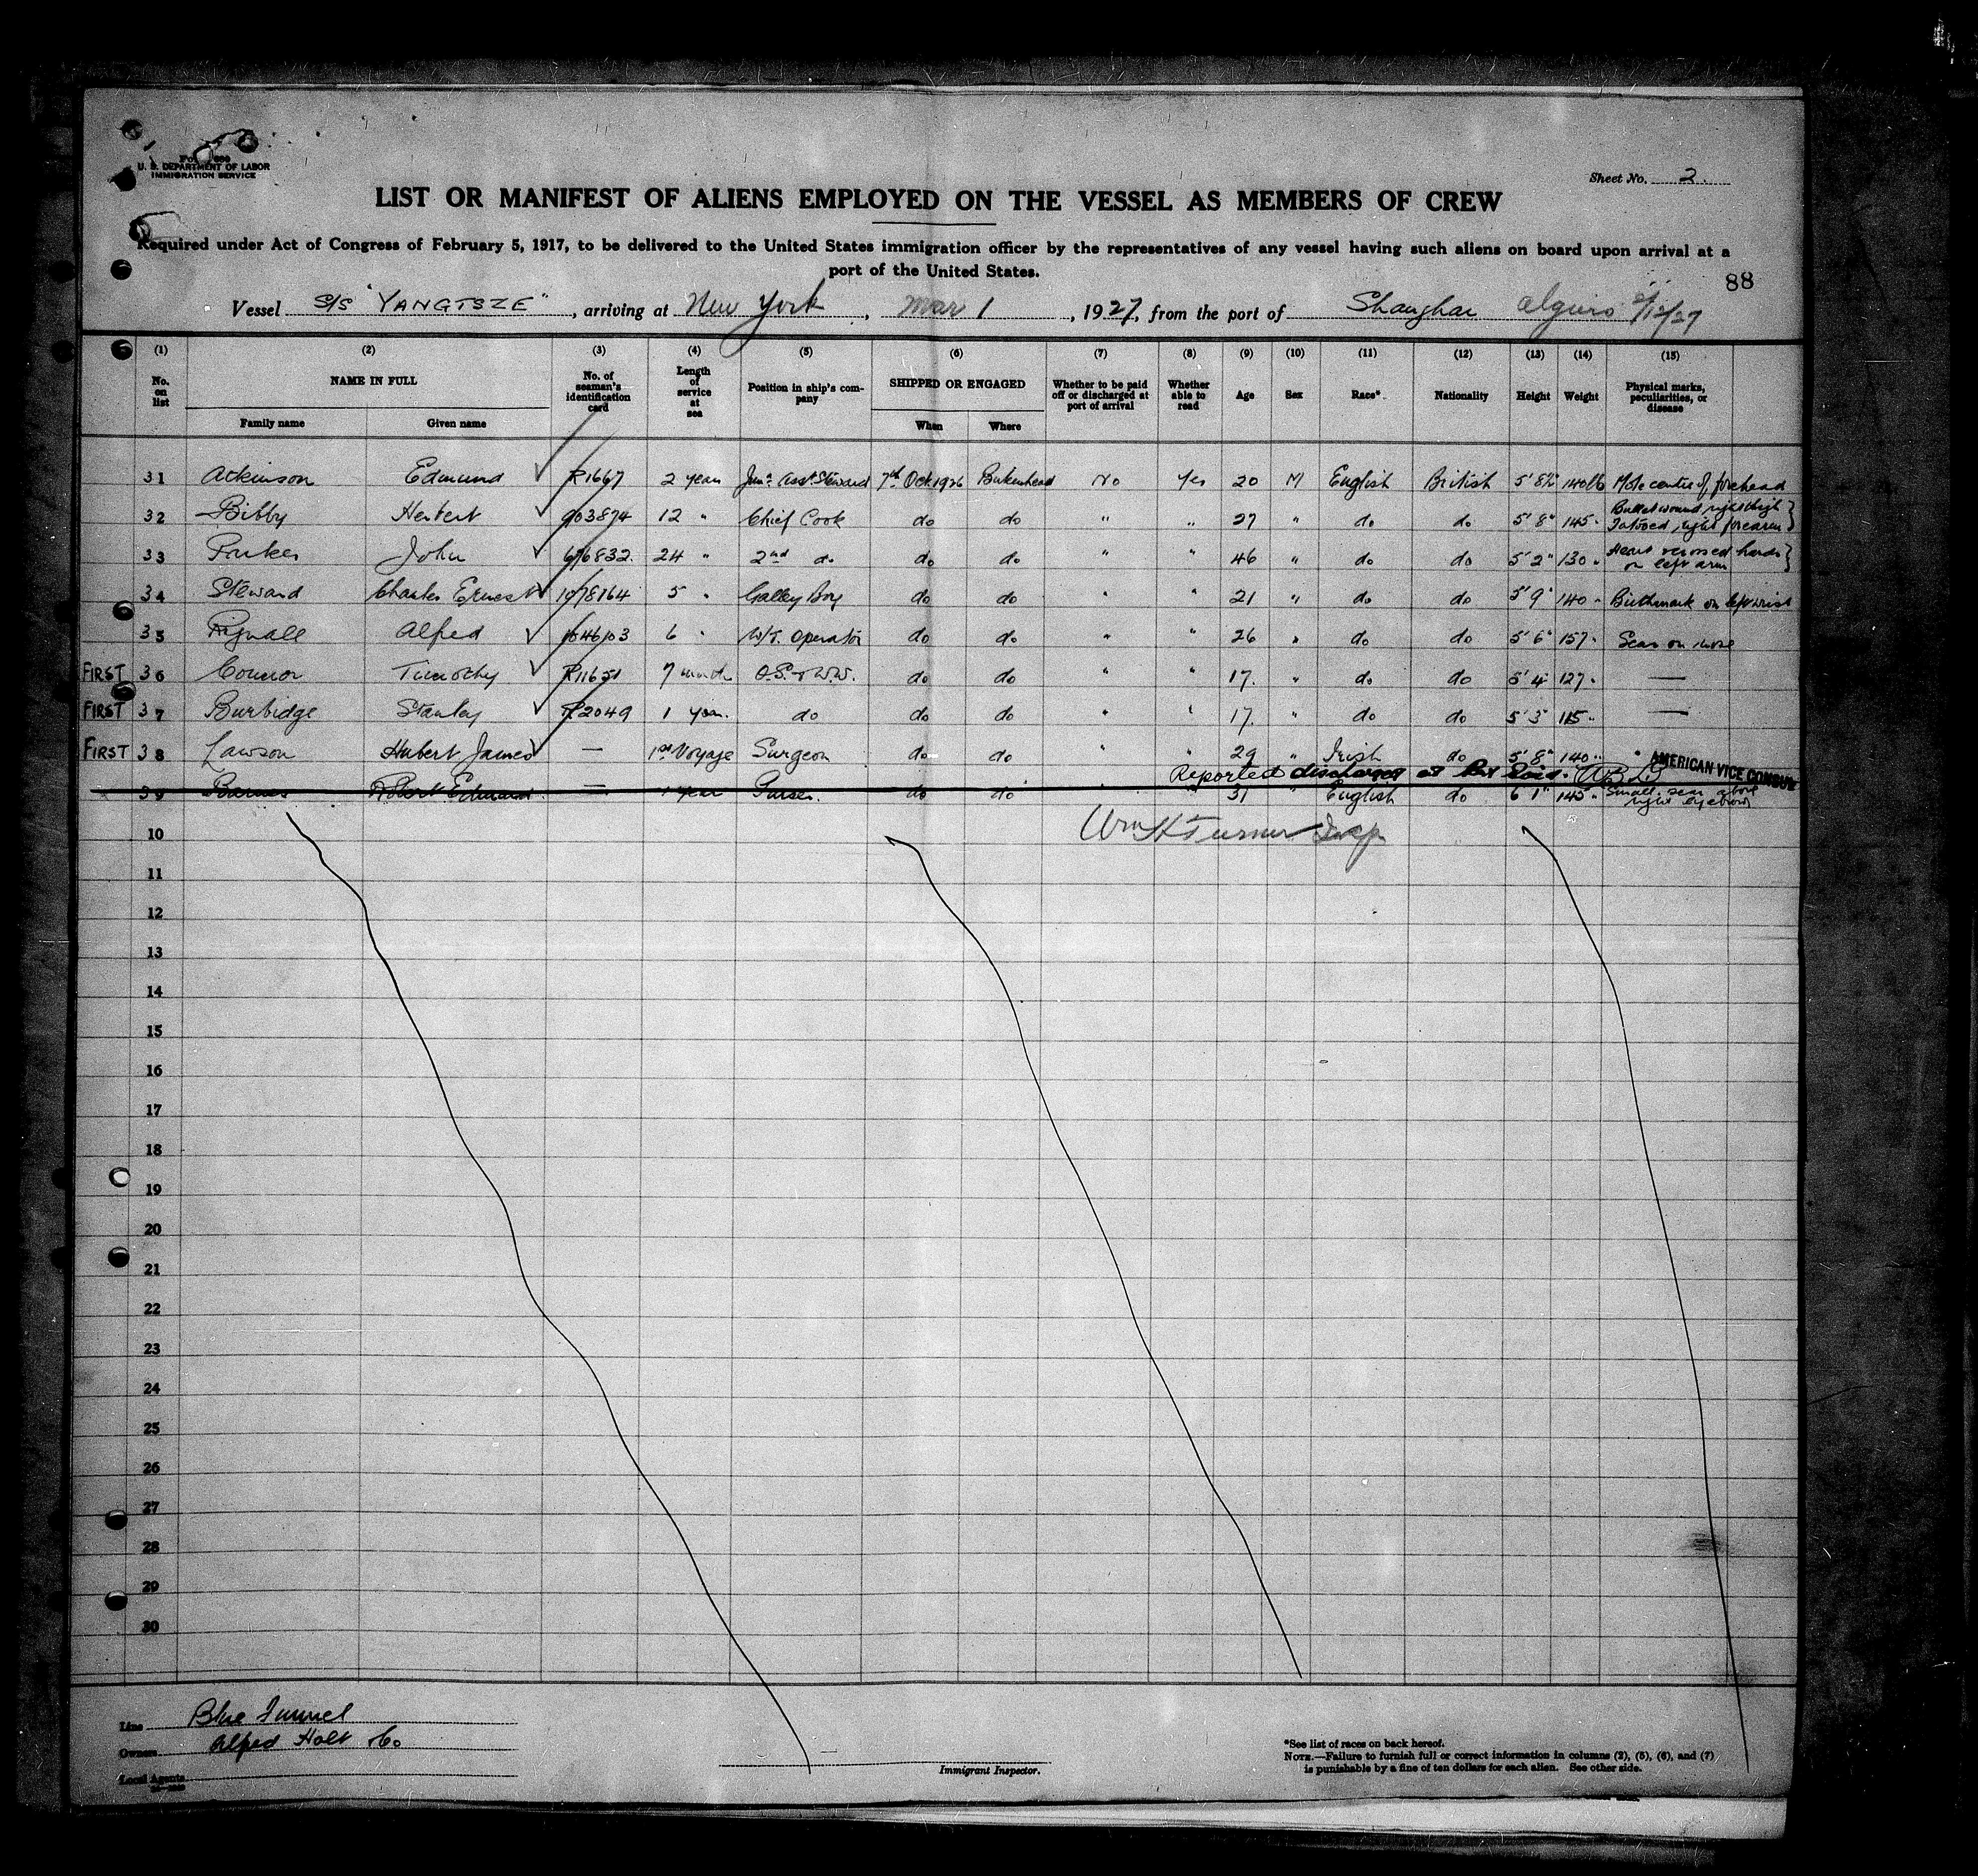 U. S. DEPARTMENT OF LABOR
IMMIGRATION SERVICE
Sheet No. 2.
LIST OR MANIFEST OF ALIENS EMPLOYED ON THE VESSEL AS MEMBERS OF CREW
Required under Act of Congress of February 5, 1917, to be delivered to the United States immigration officer by the representatives of any vessel having such aliens on board upon arrival at a
port of the United States.
88
Vessel S/S "YANGTSZE", arriving at New York, Mar 1, 1927, from the port of Shanghai
(1) (2) (3) (4) (5) (6) (7) (8) (9) (10) (11) (12) (13) (14) (15)
No. on list NAME IN FULL No. of seaman's identification card Length of service at sea Position in ship's company SHIPPED OR ENGAGED Whether to be paid off or discharged at port of arrival Whether able to read Age Sex Race* Nationality Height Weight Physical marks, peculiarities, or disease
Family name Given name When Where
31 Atkinson Edmund R1667 2 year Junr Asst Steward 7th Oct 1926 Birkenhead No Yes 20 M English British 5' 8½" 140 lb Mole centre of forehead
32 Bibby Herbert 903874 12 " Chief Cook do do " " 27 " do do 5' 8" 145 " Bullet wound right thigh } Tatooed right forearm
33 Parkes John 696832 24 " 2nd do do do " " 46 " do do 5' 2" 130 " Heart crossed hands } on left arm
34 Steward Charles Ernest 1078164 5 " Galley Boy do do " " 21 " do do 5' 9" 140 " Birthmark on left wrist
35 Alfred 6 " W/T. Operator do do " " 26 " do do 5' 6" 157 " Scar on nose
FIRST 36 Connor Timothy R11651 7 month O.S. & W.W. do do " " 17. " do do 5' 4" 127 " —
FIRST 37 Burbidge Stanley R2049 1 year. do do do " " 17. " do do 5' 3" 115 " —
FIRST 38 Lawson Hubert James — 1st Voyage Surgeon do do " " 29 " Irish do 5' 8" 140 " "
Reported discharged at Port Said. AMERICAN VICE CONSUL
39 Barnes Robert Edmund — 1 year Purser. do do " " 31 " English do 6' 1" 145 " Small scar above right eyebrow
Wm H Turner Insp
10
11
12
13
14
15
16
17
18
19
20
21
22
23
24
25
26
27
28
29
30
Line Blue Funnel
Owners Alfred Holt & Co
Local Agents
Immigrant Inspector.
*See list of races on back hereof.
NOTE.—Failure to furnish full or correct information in columns (2), (5), (6), and (7)
is punishable by a fine of ten dollars for each alien. See other side.